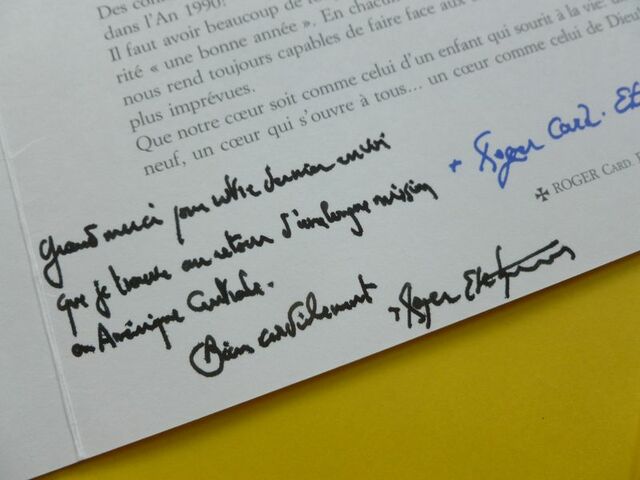 Des
dans l'An 1990!
Il faut avoir beaucoup de
rité « une bonne année ». En chacun
nous rend toujours capables de faire face aux
plus imprévues.
Que notre cœur soit comme celui d'un enfant qui sourit à la vie:
neuf, un cœur qui s'ouvre à tous... un cœur comme celui de Dieu
+ Roger Card. Et
✠ ROGER CARD.
Grand merci pour votre dernier envoi
que je trouve au retour d'une longue mission
en Amérique Centrale.
Bien cordialement
+ Roger